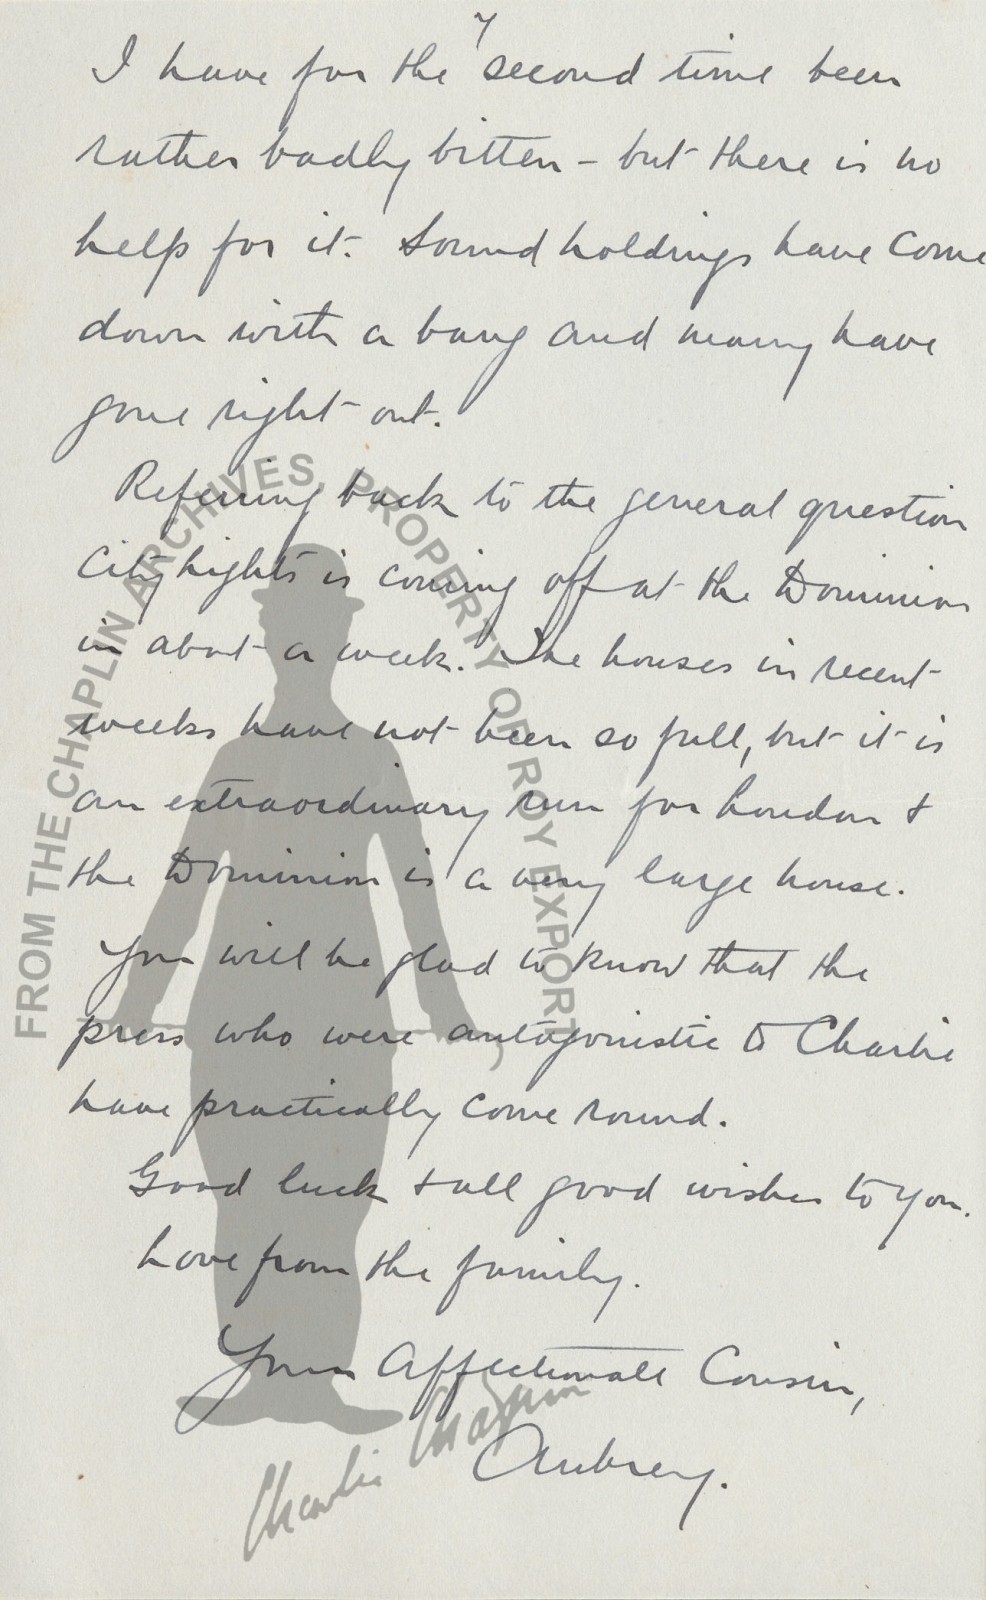 7
I have for the second time been
rather badly bitten – but there is no
help for it. Sound holdings have come
down with a bang and many have
gone right out.
Referring back to the general question
City Lights is coming off at the Dominion
in about a week. The houses in recent
weeks have not been so full, but it is
an extraordinary run for London &
the Dominion is a very large house.
You will be glad to know that the
press who were antagonistic to Charlie
have practically come round.
Good luck & all good wishes to you.
Love from the family.
Your Affectionate Cousin,
Aubrey.
FROM THE CHAPLIN ARCHIVES, PROPERTY OF ROY EXPORT
Charlie Chaplin